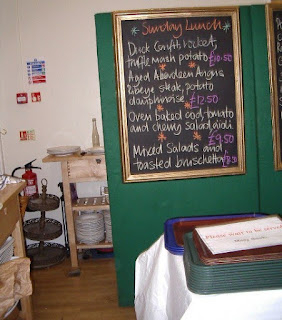 Sunday Lunch
Duck Confit rocket,
truffle mash potato £10.50
Aged Aberdeen Angus
Ribeye steak, potato
dauphinoise £12.50
Oven baked cod, tomato
and cherry salad, aioli
£9.50
Mixed Salads and
toasted bruschetta £8.50
Please wait to be served